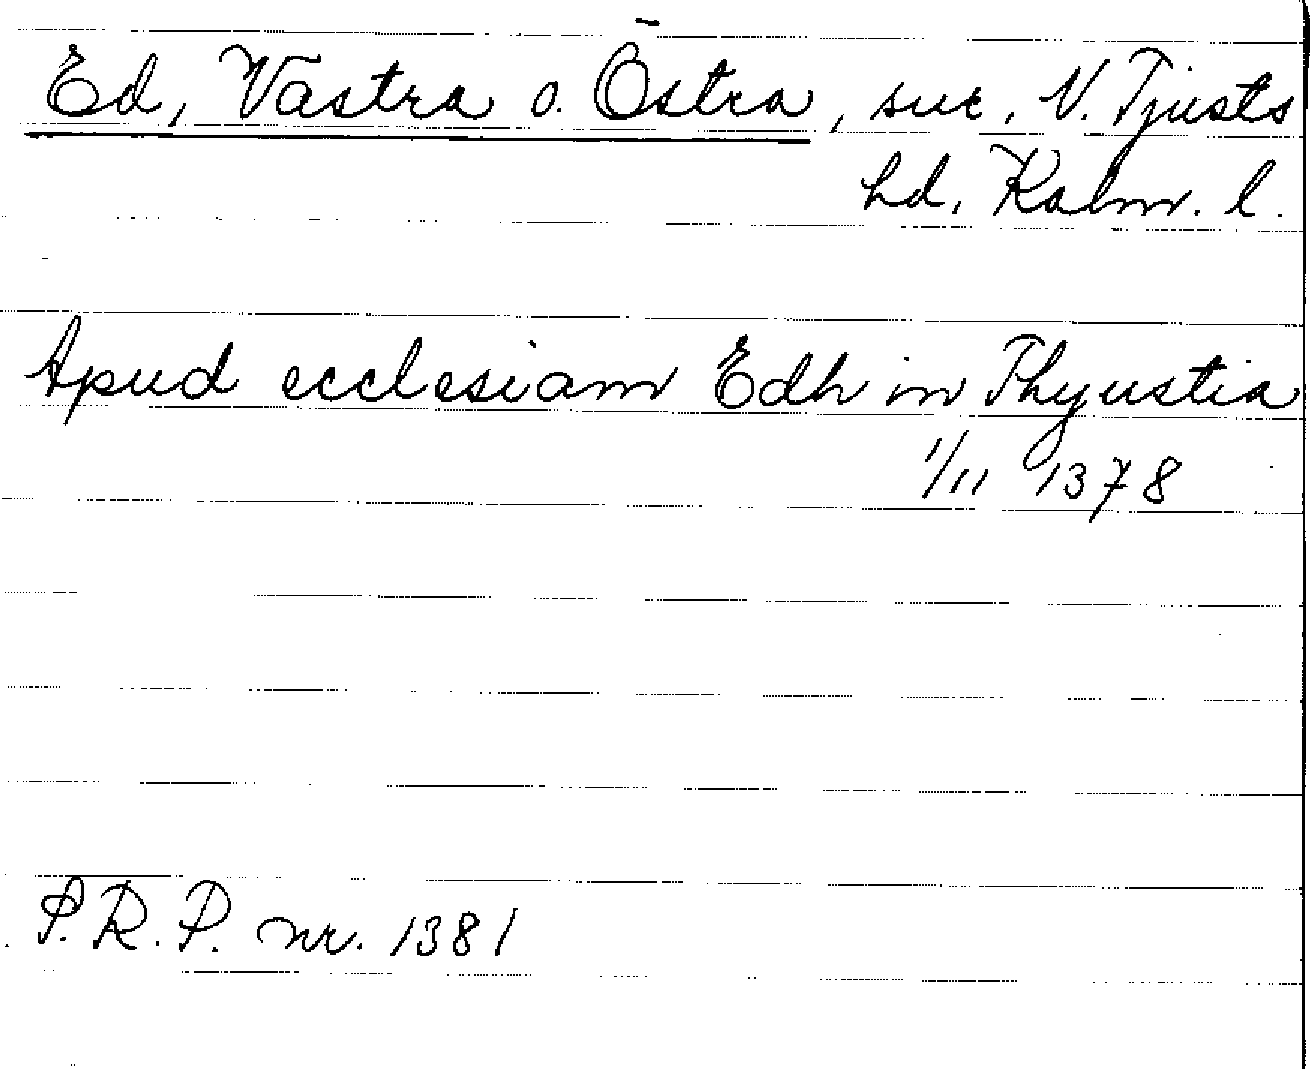 Ed, Västra o. Östra, sur. N. Tjusts
hd. Kalm. l.
Apud ecclesiam Edh in Thyustia
1/11 1378
P.R.P. nr. 1381